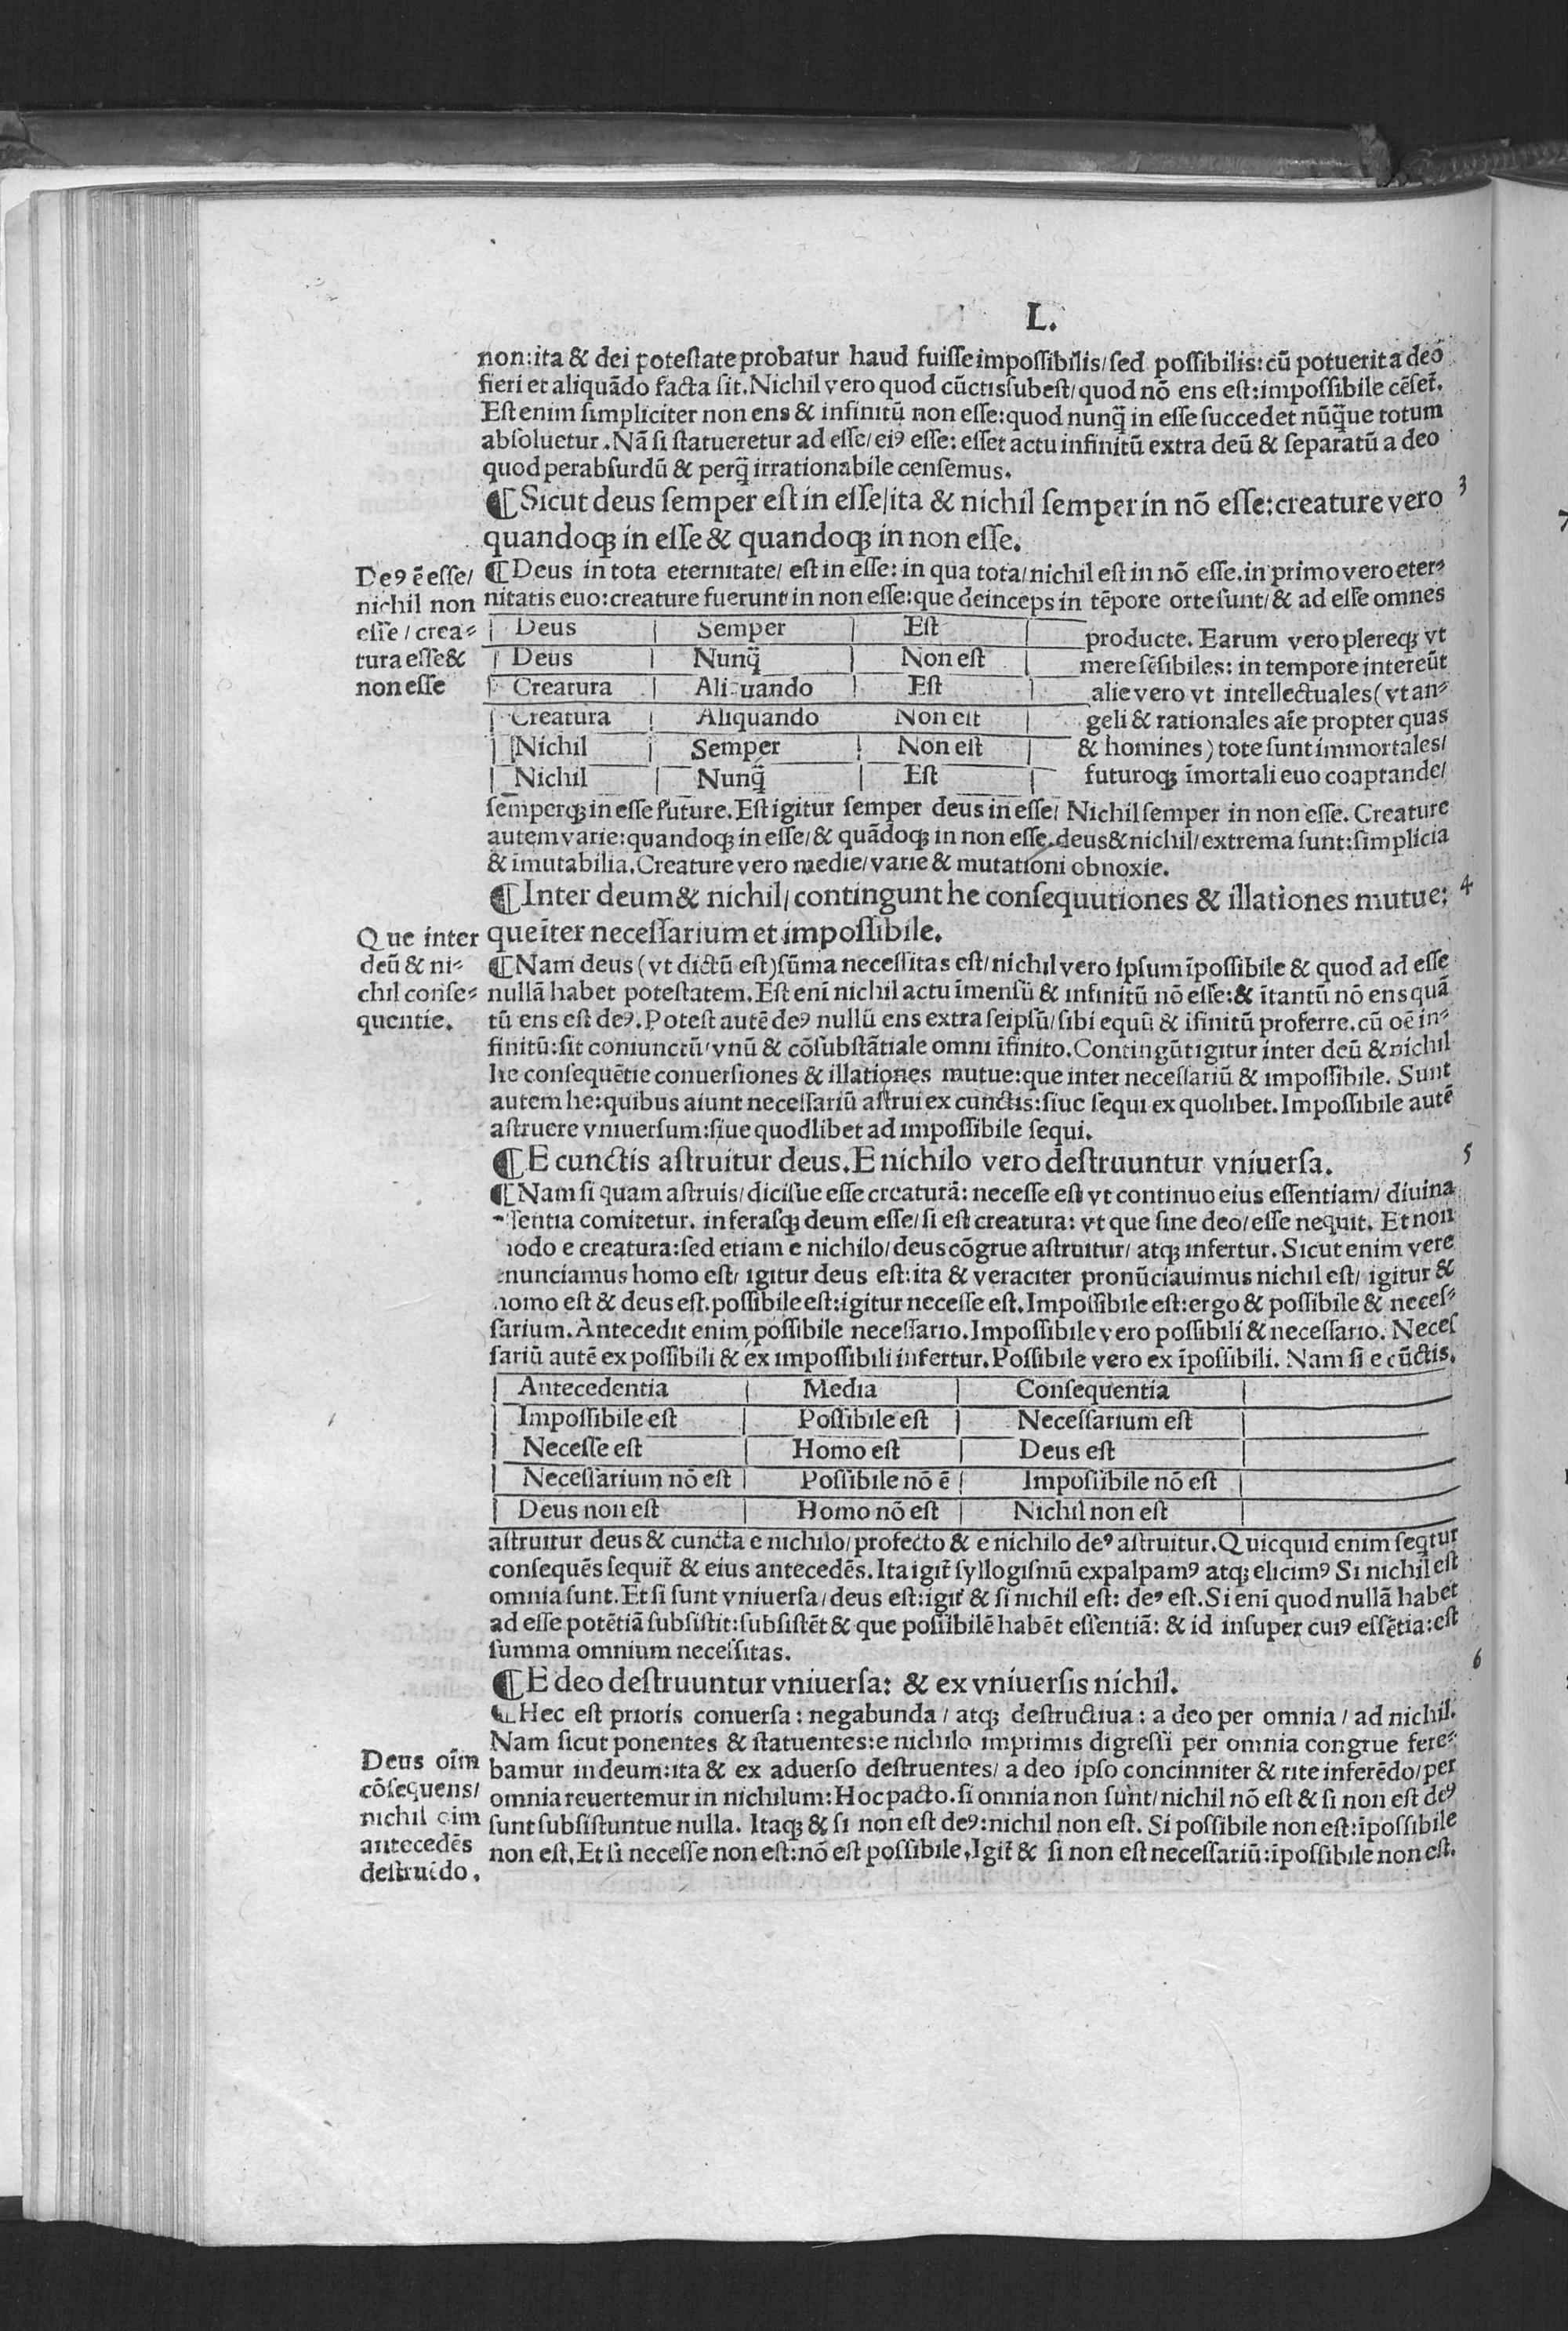 L.
non:ita & dei potestate probatur haud fuisse impossibilis/sed possibilis:cū potuerit a deo
fieri et aliquādo facta sit. Nichil vero quod cūctis subest/quod nō ens est:impossibile cēset̄.
Est enim simpliciter non ens & infinitū non esse:quod nunq̄ in esse succedet nūq̄ue totum
absoluetur. Nā si statueretur ad esse/eiꝰ esse: esset actu infinitū extra deū & separatū a deo
quod perabsurdū & perq̄ irrationabile censemus.
¶Sicut deus semper est in esse/ita & nichil semper in nō esse:creature vero 3
quandoqꝫ in esse & quandoqꝫ in non esse.
Deꝰ ē esse/
nichil non
esse/crea-
tura esse &
non esse
¶Deus in tota eternitate/ est in esse: in qua tota/nichil est in nō esse. in primo vero eter-
nitatis euo:creature fuerunt in non esse:que deinceps in tēpore orte sunt/& ad esse omnes
| Deus | Semper | Est | producte. Earum vero plereqꝫ vt
| Deus | Nunq̄ | Non est | mere sēsibiles: in tempore intereūt
| Creatura | Aliquando | Est | alie vero vt intellectuales (vt an-
| Creatura | Aliquando | Non est | geli & rationales aīe propter quas
| Nichil | Semper | Non est | & homines) tote sunt immortales/
| Nichil | Nunq̄ | Est | futuroqꝫ īmortali euo coaptande/
semperqꝫ in esse future. Est igitur semper deus in esse/ Nichil semper in non esse. Creature
autem varie:quandoqꝫ in esse/& quādoqꝫ in non esse. deus & nichil/extrema sunt:simplicia
& īmutabilia. Creature vero medie/varie & mutationi obnoxie.
¶Inter deum & nichil/contingunt he consequutiones & illationes mutue: 4
que īter necessarium et impossibile.
Que inter
deū & ni-
chil conse-
quentie.
¶Nam deus (vt dictū est) sūma necessitas est/nichil vero ipsum īpossibile & quod ad esse
nullā habet potestatem. Est enī nichil actu īmensū & infinitū nō esse:& ītantū nō ens quā
tū ens est deꝰ. Potest autē deꝰ nullū ens extra seipsū/sibi equū & ifinitū proferre. cū oē in-
finitū:sit coniunctū/vnū & cōsubstātiale omni īfinito. Contingūt igitur inter deū & nichil
he consequētie conuersiones & illationes mutue:que inter necessariū & impossibile. Sunt
autem he:quibus aiunt necessariū astrui ex cunctis:siue sequi ex quolibet. Impossibile autē
astruere vniuersum:siue quodlibet ad impossibile sequi.
¶E cunctis astruitur deus. E nichilo vero destruuntur vniuersa. 5
¶Nam si quam astruis/dicisue esse creaturā: necesse est vt continuo eius essentiam/ diuina
sentia comitetur. inferasqꝫ deum esse/si est creatura: vt que sine deo/esse nequit. Et non
modo e creatura:sed etiam e nichilo/deus cōgrue astruitur/atqꝫ infertur. Sicut enim vere
enunciamus homo est/ igitur deus est:ita & veraciter pronūciauimus nichil est/ igitur &
homo est & deus est. possibile est:igitur necesse est. Impossibile est:ergo & possibile & neces-
sarium. Antecedit enim possibile necessario. Impossibile vero possibili & necessario. Neces
sariū autē ex possibili & ex impossibili infertur. Possibile vero ex īpossibili. Nam si e cūctis.
| Antecedentia | Media | Consequentia |
| Impossibile est | Possibile est | Necessarium est
| Necesse est | Homo est | Deus est |
| Necessarium nō est | Possibile nō ē | Impossibile nō est |
| Deus non est | Homo nō est | Nichil non est |
astruitur deus & cuncta e nichilo/profecto & e nichilo deꝰ astruitur. Quicquid enim seqtur
consequēs sequit̄ & eius antecedēs. Ita igit̄ syllogismū expalpamꝰ atqꝫ elicimꝰ Si nichil est
omnia sunt. Et si sunt vniuersa/deus est:igit̄ & si nichil est: deꝰ est. Si enī quod nullā habet
ad esse potētiā subsistit:subsistēt & que possibilē habēt essentiā: & id insuper cuiꝰ essētia:est
summa omnium necessitas.
¶E deo destruuntur vniuersa: & ex vniuersis nichil. 6
¶Hec est prioris conuersa: negabunda/ atqꝫ destructiua: a deo per omnia/ ad nichil.
Nam sicut ponentes & statuentes:e nichilo imprimis digressi per omnia congrue fere-
Deus oīm
cōsequens/
nichil oim
antecedēs
destruēdo.
bamur in deum:ita & ex aduerso destruentes/a deo ipso concinniter & rite inferēdo/per
omnia reuertemur in nichilum: Hoc pacto. si omnia non sunt/nichil nō est & si non est deꝰ
sunt subsistuntue nulla. Itaqꝫ & si non est deꝰ:nichil non est. Si possibile non est:īpossibile
non est. Et si necesse non est:nō est possibile. Igit̄ & si non est necessariū:īpossibile non est.